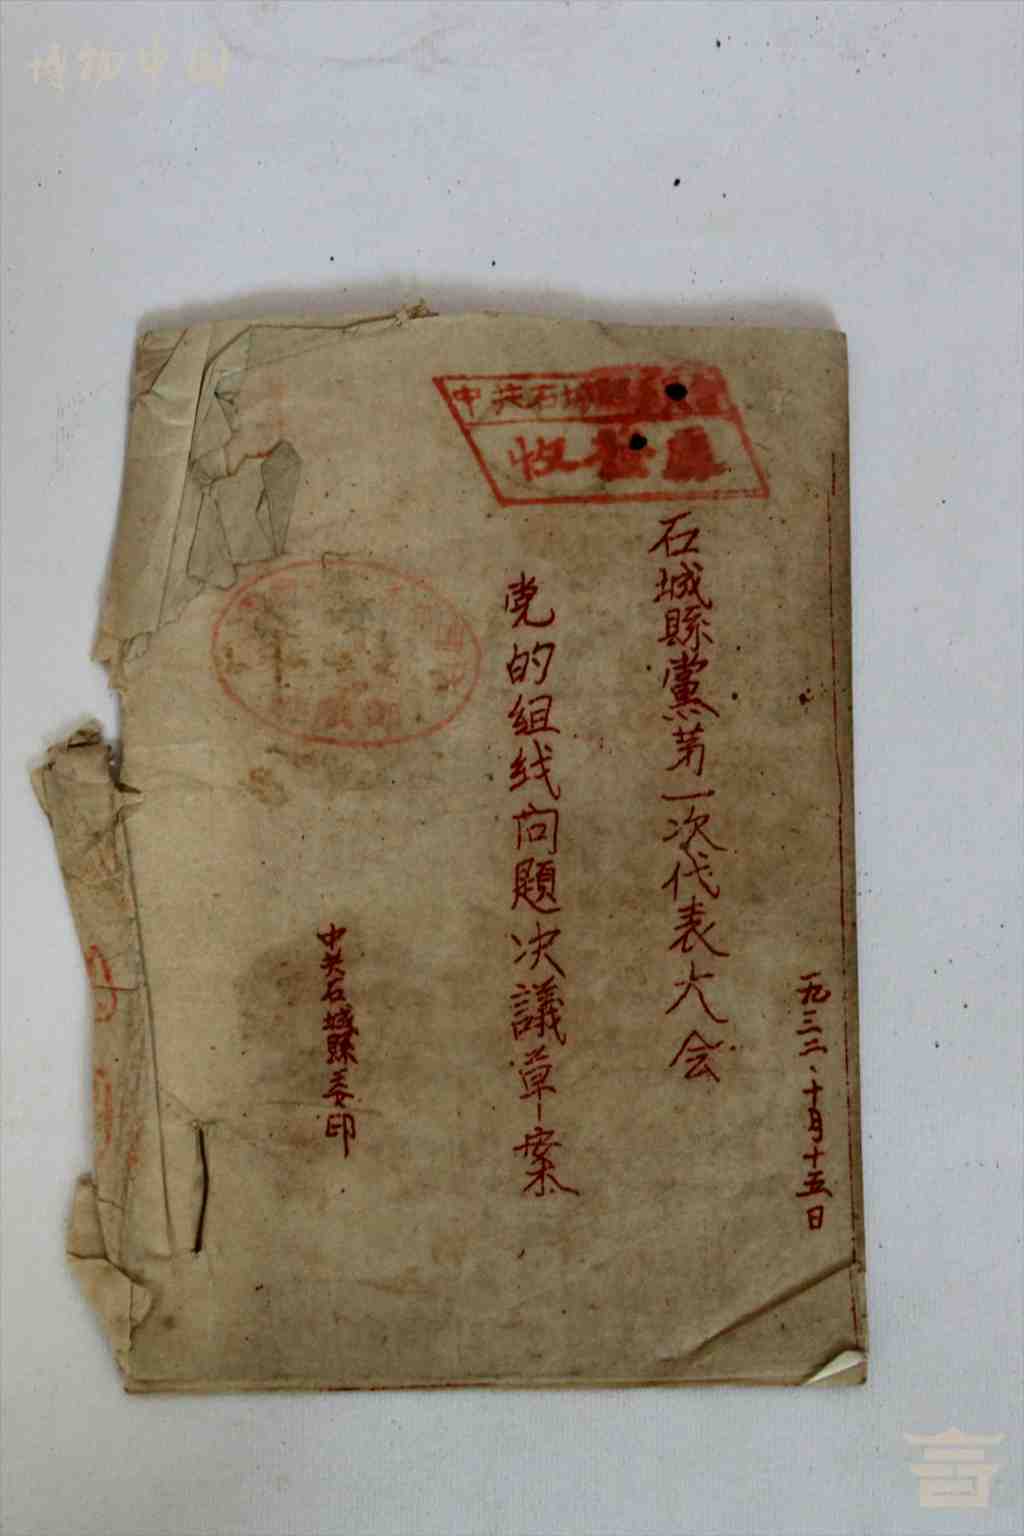 博物中国
中共石城
收发
一九三二、十月十五日
石城縣黨第一次代表大会
党的组线问題决議草案
中共石城縣委印